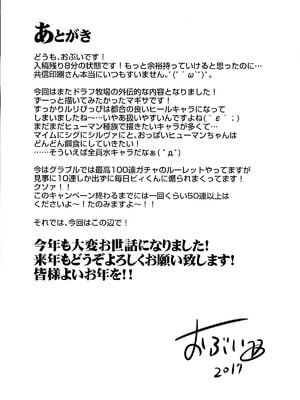 あとがき
どうも、おぶいです！
入稿残り8分の状態です！もっと余裕持っていけると思ったのに…
共信印刷さん本当にいつもすいません。
今回はまたドラフ牧場の外伝的な内容となりました！
ずーっと描いてみたかったマギサです！
すっかりルリぴっぴは都合の良いヒールキャラになって
しまいましたね～…いやあ扱いやすいんですよね(´ε｀；)
まだまだヒューマン種族で描きたいキャラが多くて…
マイムにシグにシルヴァにと、おっぱいヒューマンちゃんは
どんどん餌食にしていきたい！
……そういえば全員水キャラだなぁ(ﾟдﾟ)
今はグラブルでは最高100連ガチャのルーレットやってますが
見事に10連しか出ずに毎日ビィくんに煽られまくってます！
クソァ！！
このキャンペーン終わるまでには一回くらい50連以上は
くださいよ～！たのみますよ～！！
それでは、今回はこの辺で！
今年も大変お世話になりました！
来年もどうぞよろしくお願い致します！
皆様よいお年を！！
おぶい
2017